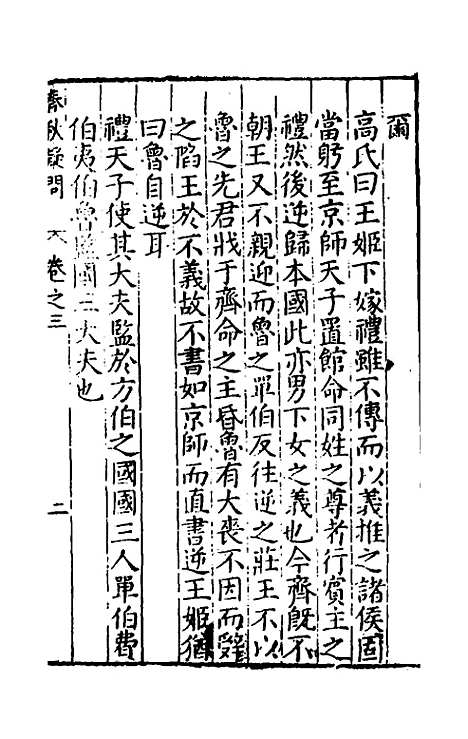 爾
高氏曰王姬下嫁禮雖不傳而以義推之諸侯固
當躬至京師天子置館命同姓之尊者行賓主之
禮然後逆歸本國此亦男下女之義也今齊旣不
朝王又不親迎而魯之單伯反往逆之莊王不以
魯之先君戕于齊命之主昏魯有大喪不因而辭
之陷王於不義故不書如京師而直書逆王姬猶
曰魯自逆耳
禮天子使其大夫監於方伯之國國三人單伯費
伯夷伯魯監國三大夫也
春秋疑問 卷之三 二